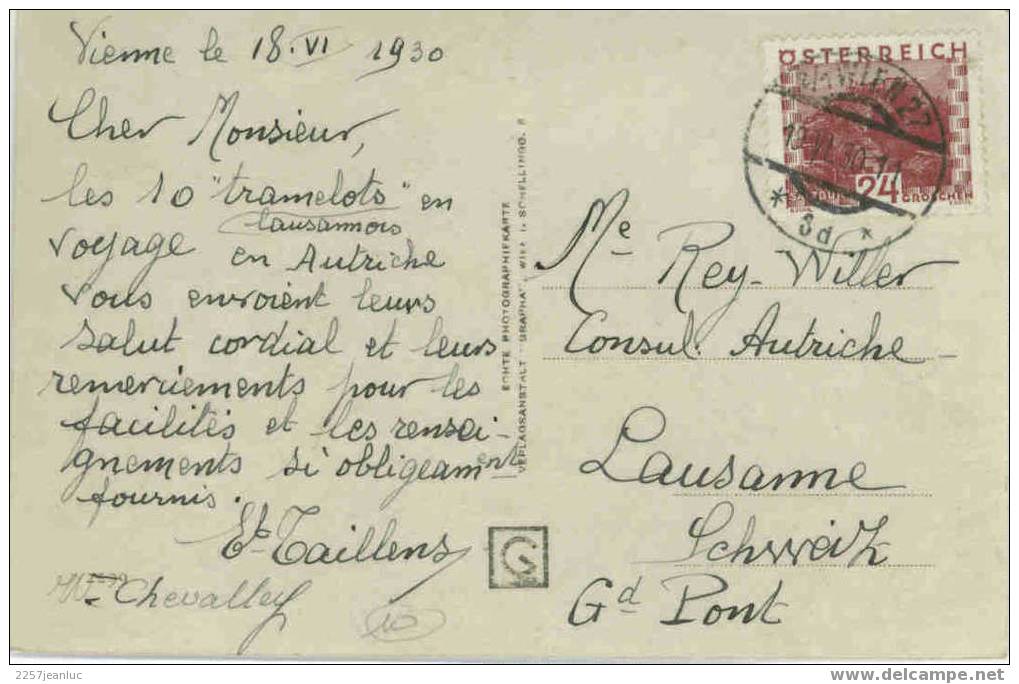 Vienne le 18.VI 1930
Cher Monsieur,
les 10 "tramelots" en
lausannois
voyage en Autriche
vous envoient leurs
salut cordial et leurs
remerciements pour les
facilités et les rensei-
gnements si obligeamment
fournis.
Et. Taillens
Chevalley
10
ECHTE PHOTOGRAPHIEKARTE
VERLAGSANSTALT "GRAPHIA", WIEN
G
ÖSTERREICH
24 GROSCHEN
WIEN 27
18.VI.30
* 3d *
Me Rey-Willer
Consul. Autriche
Lausanne
Schweiz
Gd Pont
2257jeanluc
www.delcampe.net